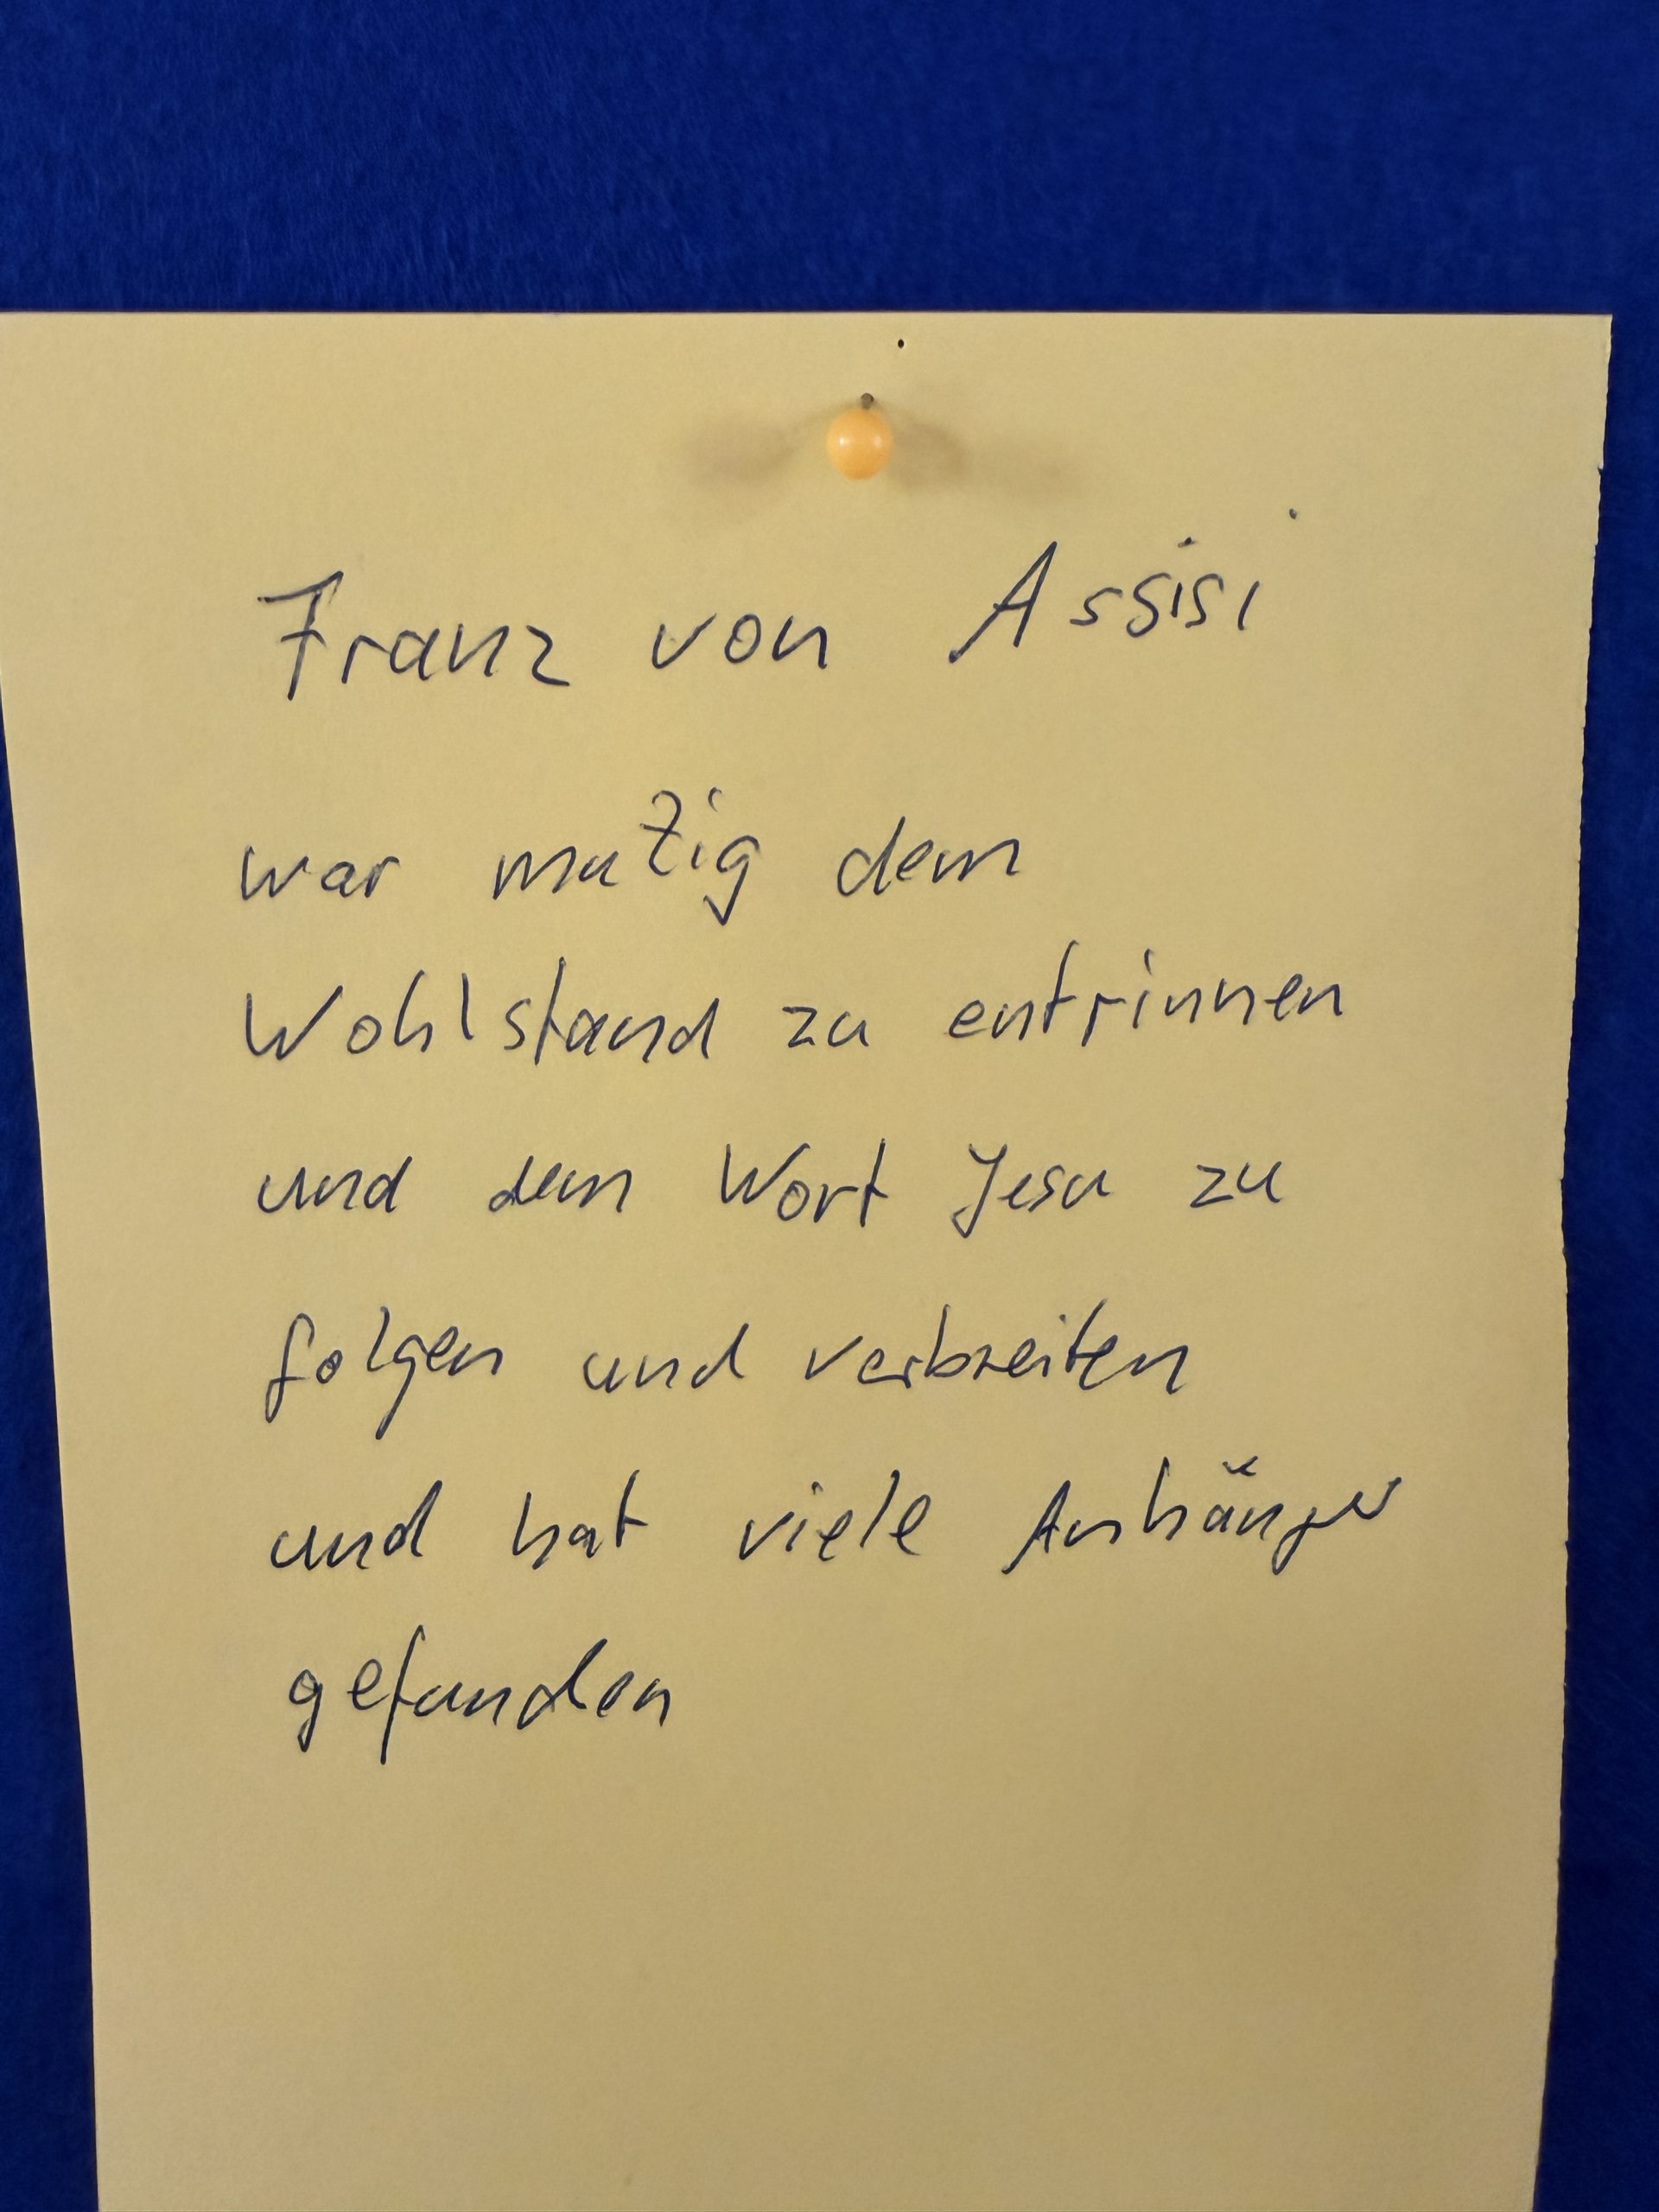 Franz von Assisi
war mutig dem
Wohlstand zu entrinnen
und dem Wort Jesu zu
folgen und verbreiten
und hat viele Anhänger
gefunden